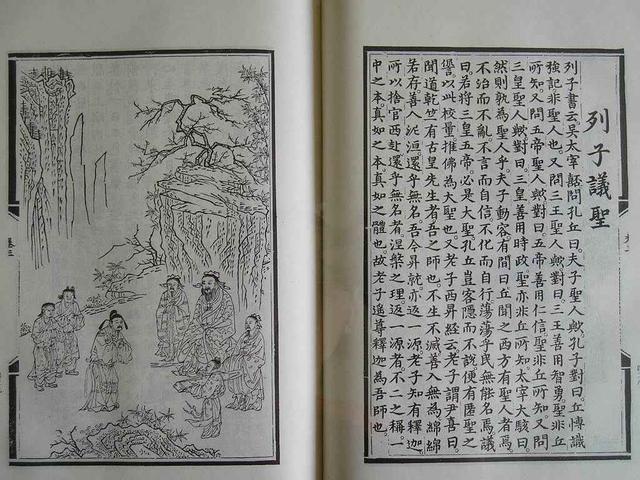 列子議聖
列子書云吳太宰嚭問孔丘曰夫子聖人歟孔子對曰丘博識
強記非聖人也又問三王聖人歟對曰三王善用智勇聖非丘
所知又問五帝聖人歟對曰五帝善用仁信聖非丘所知又問
三皇聖人歟對曰三皇善用時政聖亦非丘所知太宰大駭曰
然則孰為聖人乎夫子動容有間曰丘聞之西方有聖人者焉
不治而不亂不言而自信不化而自行蕩蕩乎民無能名焉議
曰若將三皇五帝必是大聖孔丘豈容隱而不說便有匿聖之
諐以此校量推佛為大聖也老子西昇經云老子謂尹喜曰
聞道乾竺有古皇先生者吾之師也不生不滅善入無為綿綿
若存善入泥洹還乎無名吾今昇就亦返一源老子知有釋迦
所以捨官西赴還乎無名者涅槃之理返一源者不二之稱
中之本真如之本真如之體也故老子遙尊釋迦為吾師也
卷三